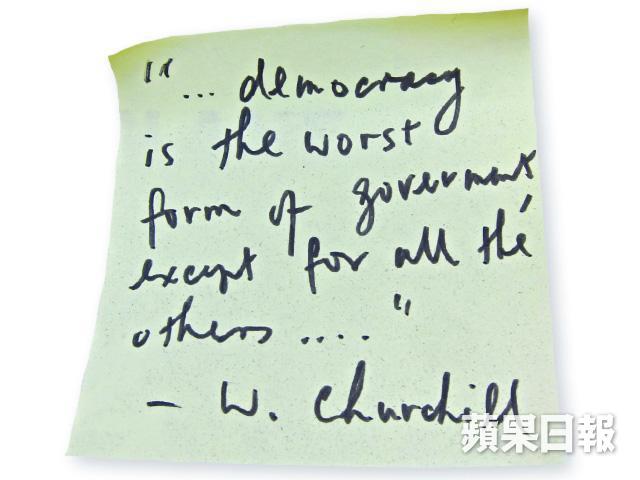 "... democracy
is the worst
form of goverment
except for all the
others ...."
- W. Churchill
蘋果日報